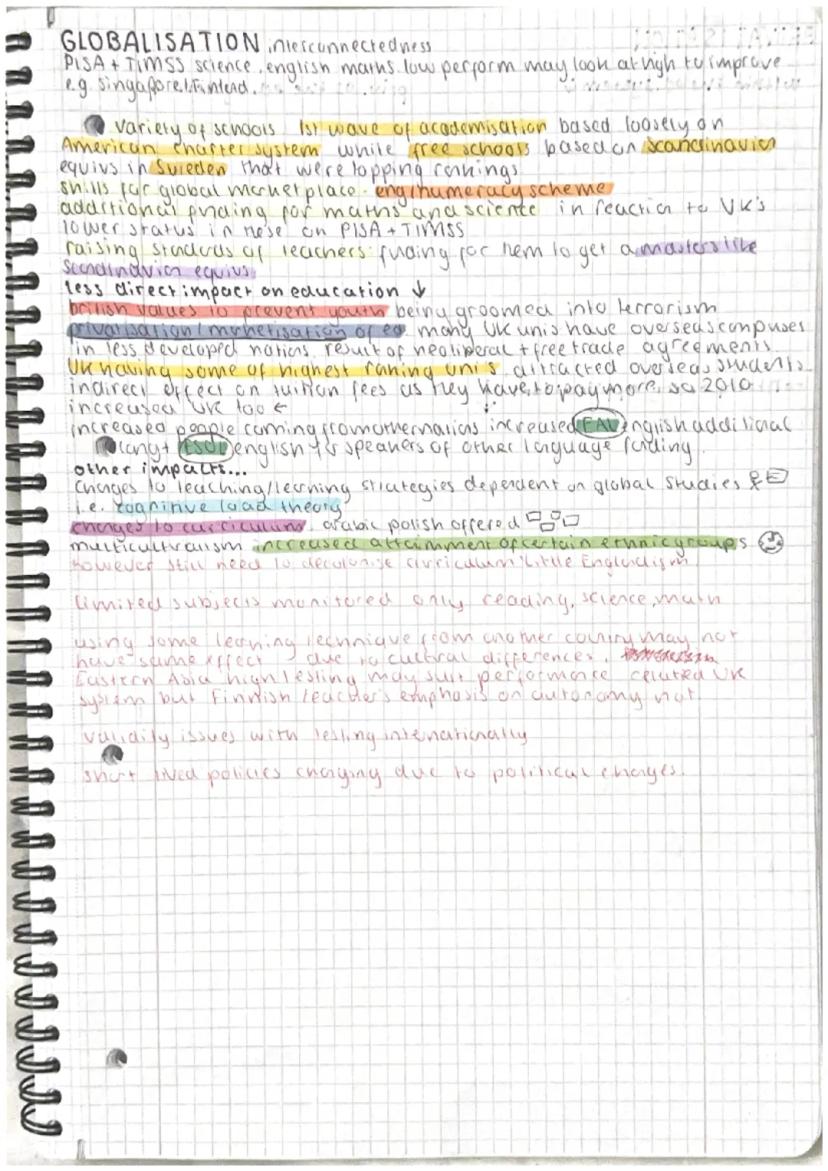 GLOBALISATION interconnectedness
PISA + TIMSS science, english maths. low perform may look at high to improve
e.g. Singapore/Finland.
variety of schools 1st wave of academisation based loosely on
American charter system while free schools based on scandinavian
equivs in Sweden that were topping rankings
skills for global marketplace. eng/numeracy scheme
additional funding for maths and science in reaction to UK's
lower status in these on PISA + TIMSS
raising standards of teachers: funding for them to get a masters like
scandinavian equivs
less direct impact on education ↓
british values to prevent youth being groomed into terrorism
privatisation/monetisation of ed many UK unis have overseas campuses
in less developed nations. result of neoliberal + free trade agreements
UK having some of highest raning unis attracted overseas students
indirect effect on tuition fees as they have to pay more, so 2010
increased UK too ←
increased people coming from other nations increased EAL english additional
lang + ESOL english for speakers of other language funding
other impacts...
changes to teaching/learning strategies dependent on global studies
i.e. cognitive load theory
changes to curriculum. arabic polish offered
multiculturalism increased attainment of certain ethnic groups
however still need to decolonise curriculum 'Little Englandism'
limited subjects monitored only reading, science, math
using some learning technique from another country may not
have same effect due to cultural differences.
Eastern Asia high testing may suit performance related UK
system but Finnish teacher's emphasis on autonomy not
validity issues with testing internationally
short lived policies changing due to political changes.